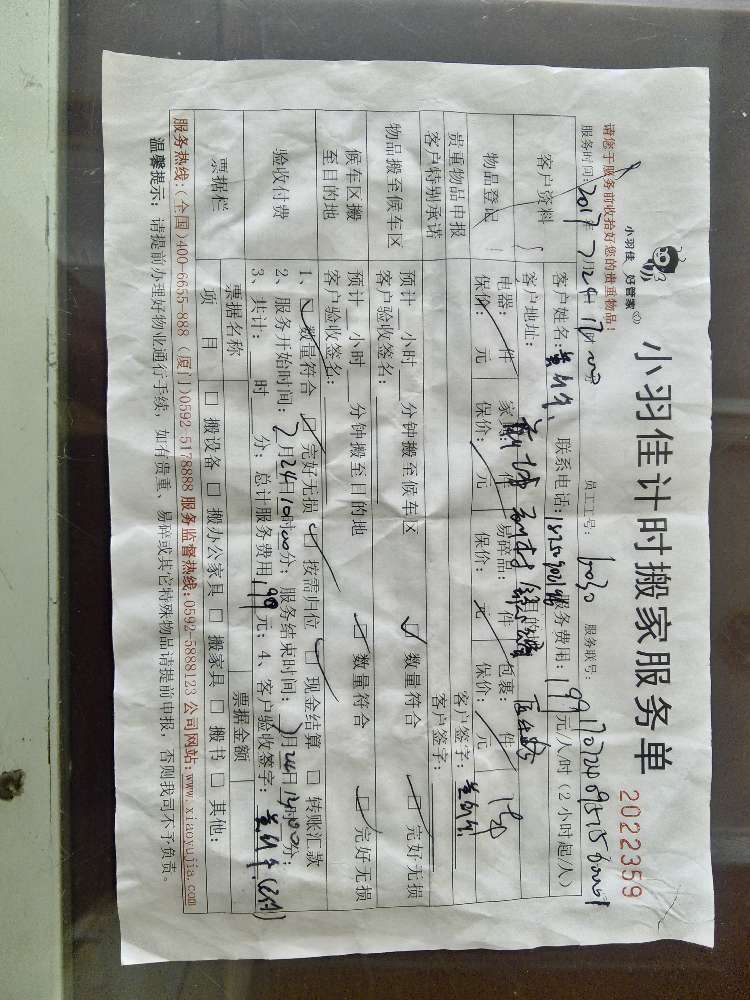 小羽佳 好管家
小羽佳计时搬家服务单
2022359
请您于服务前收拾好您的贵重物品！
服务时间：2017年7月24日 员工工号： 服务联号：
客户资料
客户姓名： 联系电话： 服务费用：199元/人/时（2小时起/人）
客户地址：
物品登记
电器： 件 家具： 件 易碎品： 件 包裹： 件
保价： 元 保价： 元 保价： 元 保价： 元
贵重物品申报 客户签字：
客户特别承诺 客户签字：
物品搬至候车区
预计 小时 分钟搬至候车区 数量符合 完好无损
客户验收签名：
候车区搬至目的地
预计 小时 分钟搬至目的地 数量符合 完好无损
客户验收签名：
验收付费
1、 数量符合 完好无损 按需归位 现金结算 转账汇款
2、服务开始时间：7月24日10时00分；服务结束时间：7月24日 时00分；
3、共计： 时 分；总计服务费用199元；4、客户验收签字：
票据栏
票据名称 票据金额
项目 搬设备 搬办公家具 搬家具 搬书 其他：
服务热线：（全国）400-6655-888（厦门）0592-5178888 服务监督热线：0592-5888123 公司网站：www.xiaoyujia.com
温馨提示：请提前办理好物业通行手续，如有贵重、易碎或其它特殊物品请提前申报，否则我司不予负责。